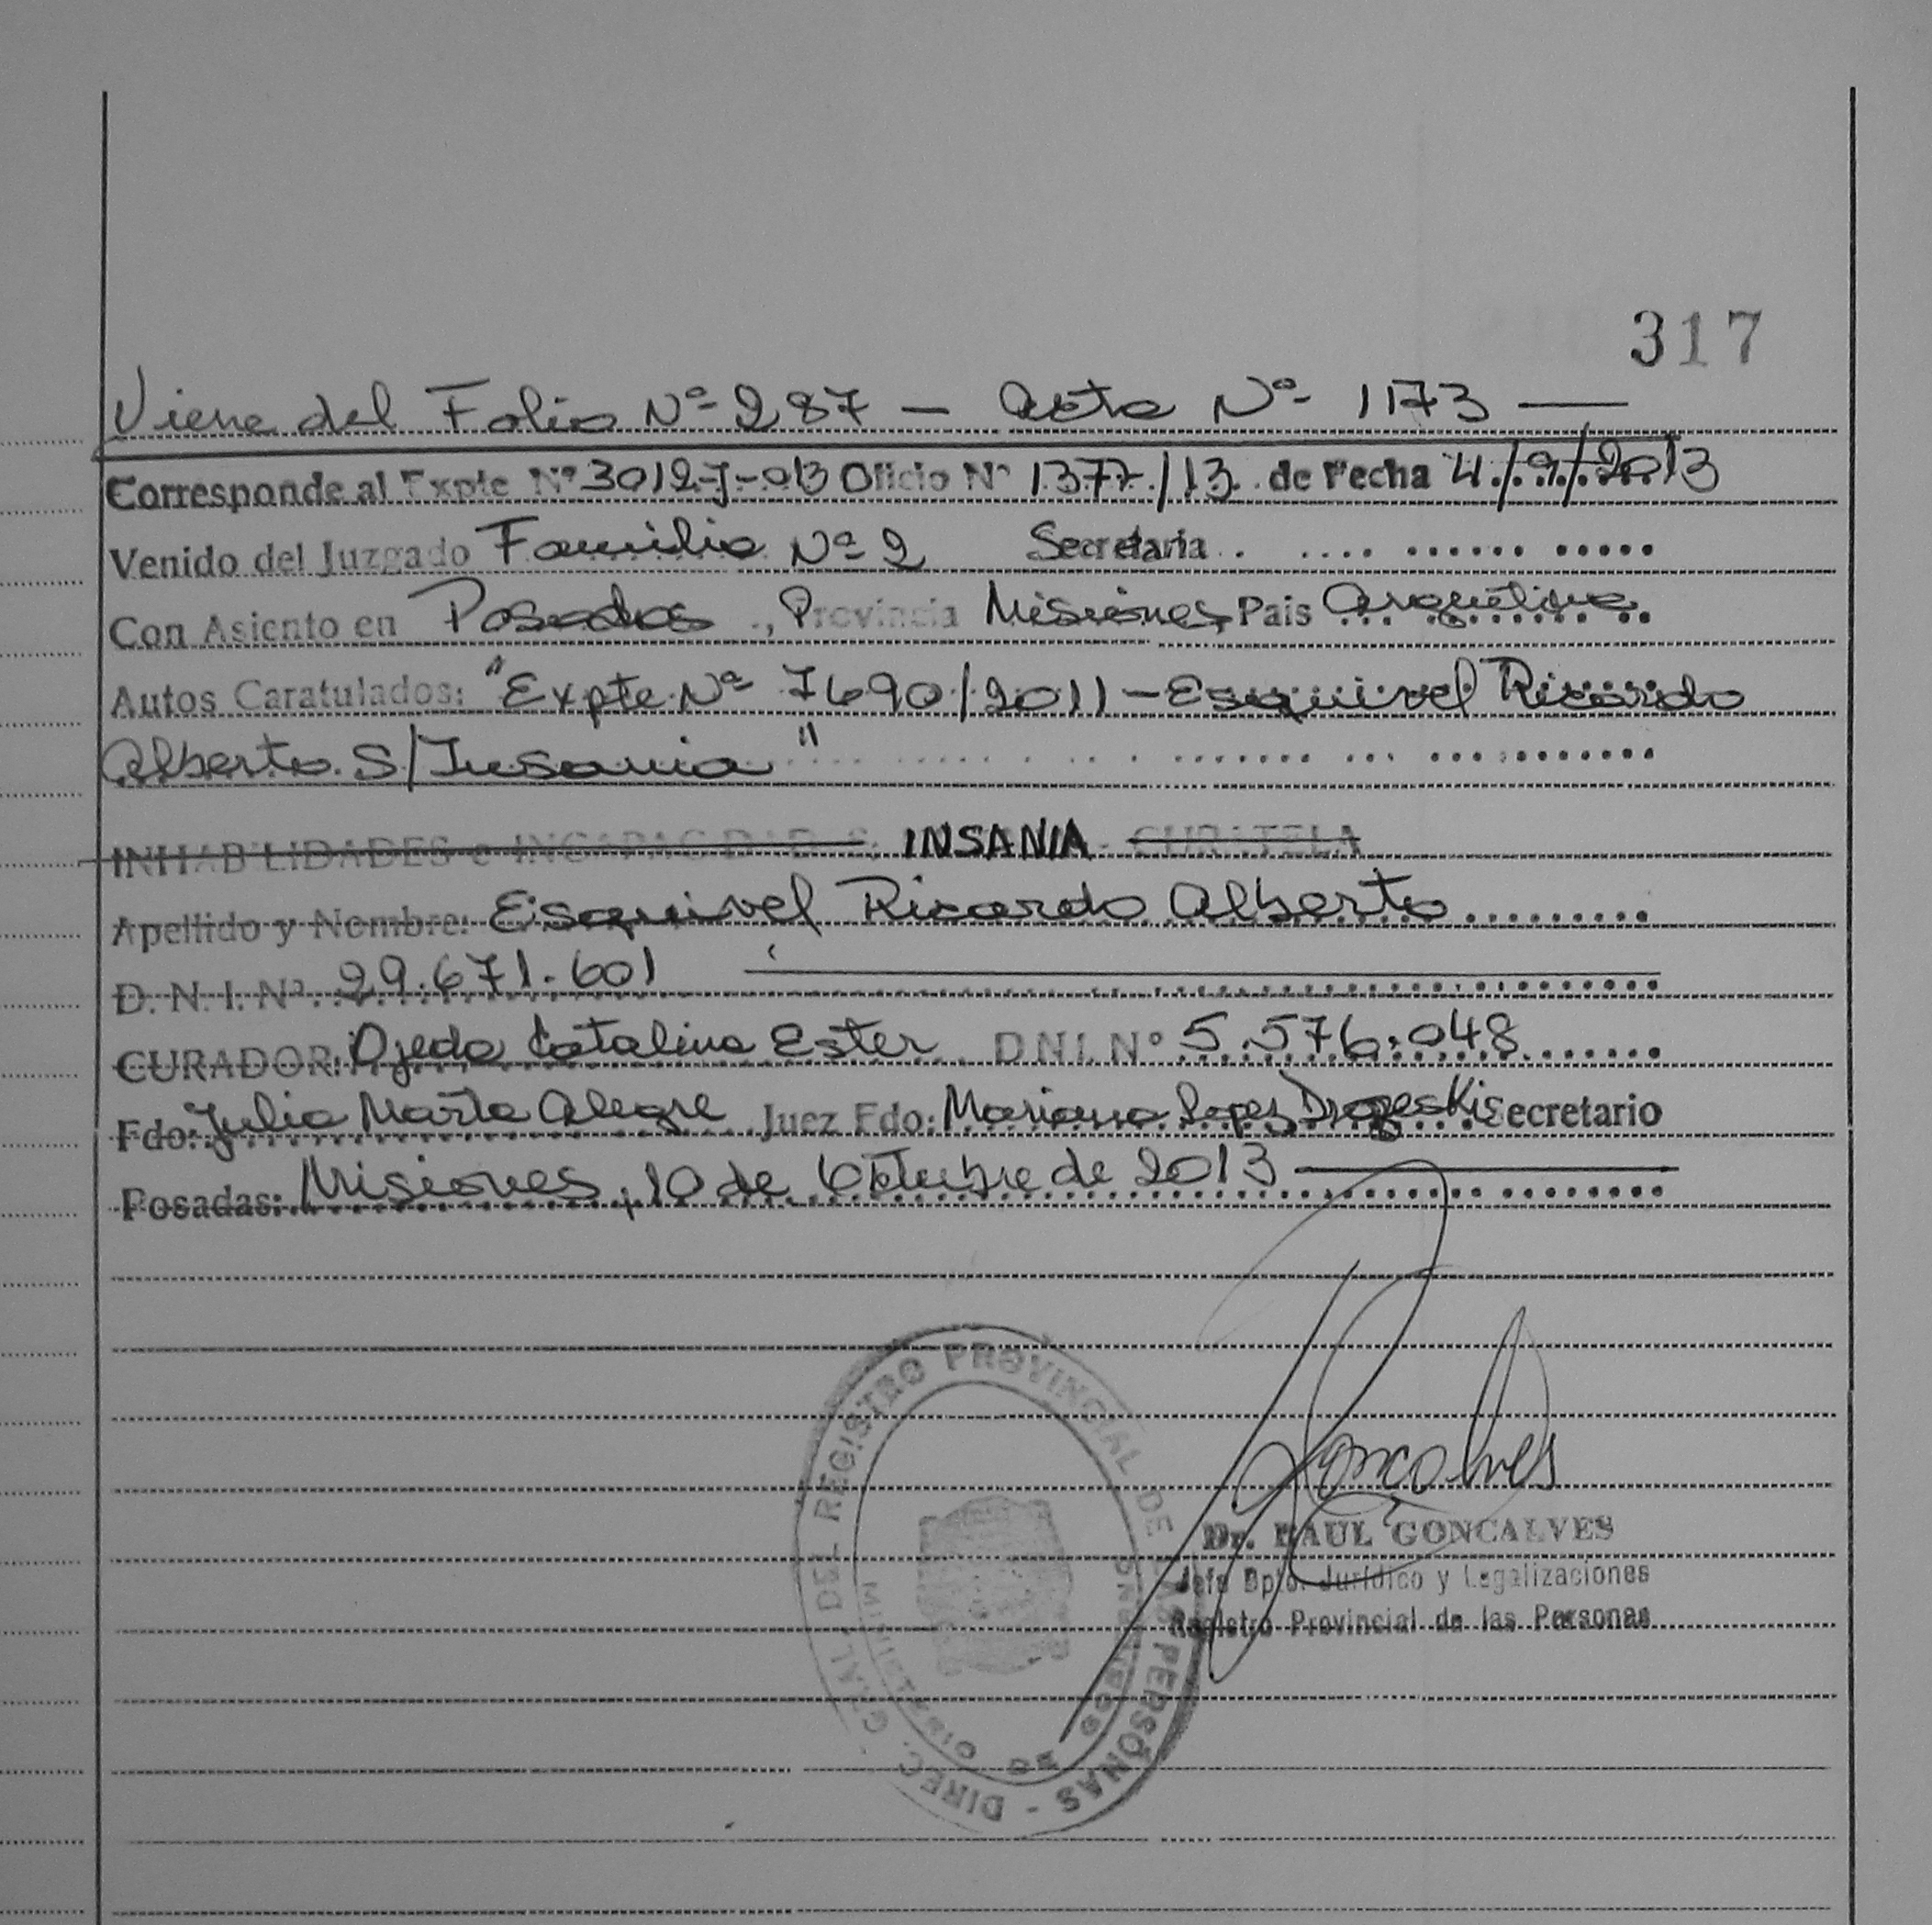 317
Viene del Folio Nº 287 — Acta Nº 1173 —
Corresponde al Expte Nº 3012-J-013 Oficio Nº 1377/13 de Fecha 4/9/2013
Venido del Juzgado Familia Nº 2 Secretaria
Con Asiento en Posadas, Provincia Misiones, Pais Argentina
Autos Caratulados: "Expte Nº 7690/2011 - Esquivel Ricardo
Alberto S/Insania"
INHABILIDADES e INCAPACIDADES: INSANIA - CURATELA
Apellido y Nombre: Esquivel Ricardo Alberto
D.N.I. Nº 29.671.601
CURADOR: Ojeda Catalina Ester D.N.I. Nº 5.576.048
Fdo: Julia Marta Alegre Juez Fdo: Mariano Lopez Secretario
Posadas: Misiones, 10 de Octubre de 2013
Goncalves
Dr. RAUL GONCALVES
Jefe Dpto. Jurídico y Legalizaciones
Registro Provincial de las Personas
DIREC. GRAL. DEL REGISTRO PROVINCIAL DE LAS PERSONAS -
MINISTERIO DE GOBIERNO